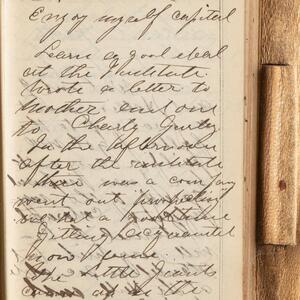 Enjoy myself capital
Learn a good deal
at the Institute
wrote a letter to
Mother and one
to Charly
In the afternoon
after the institute
there was a company
went out
Getting acquainted
now some
The Little Giants